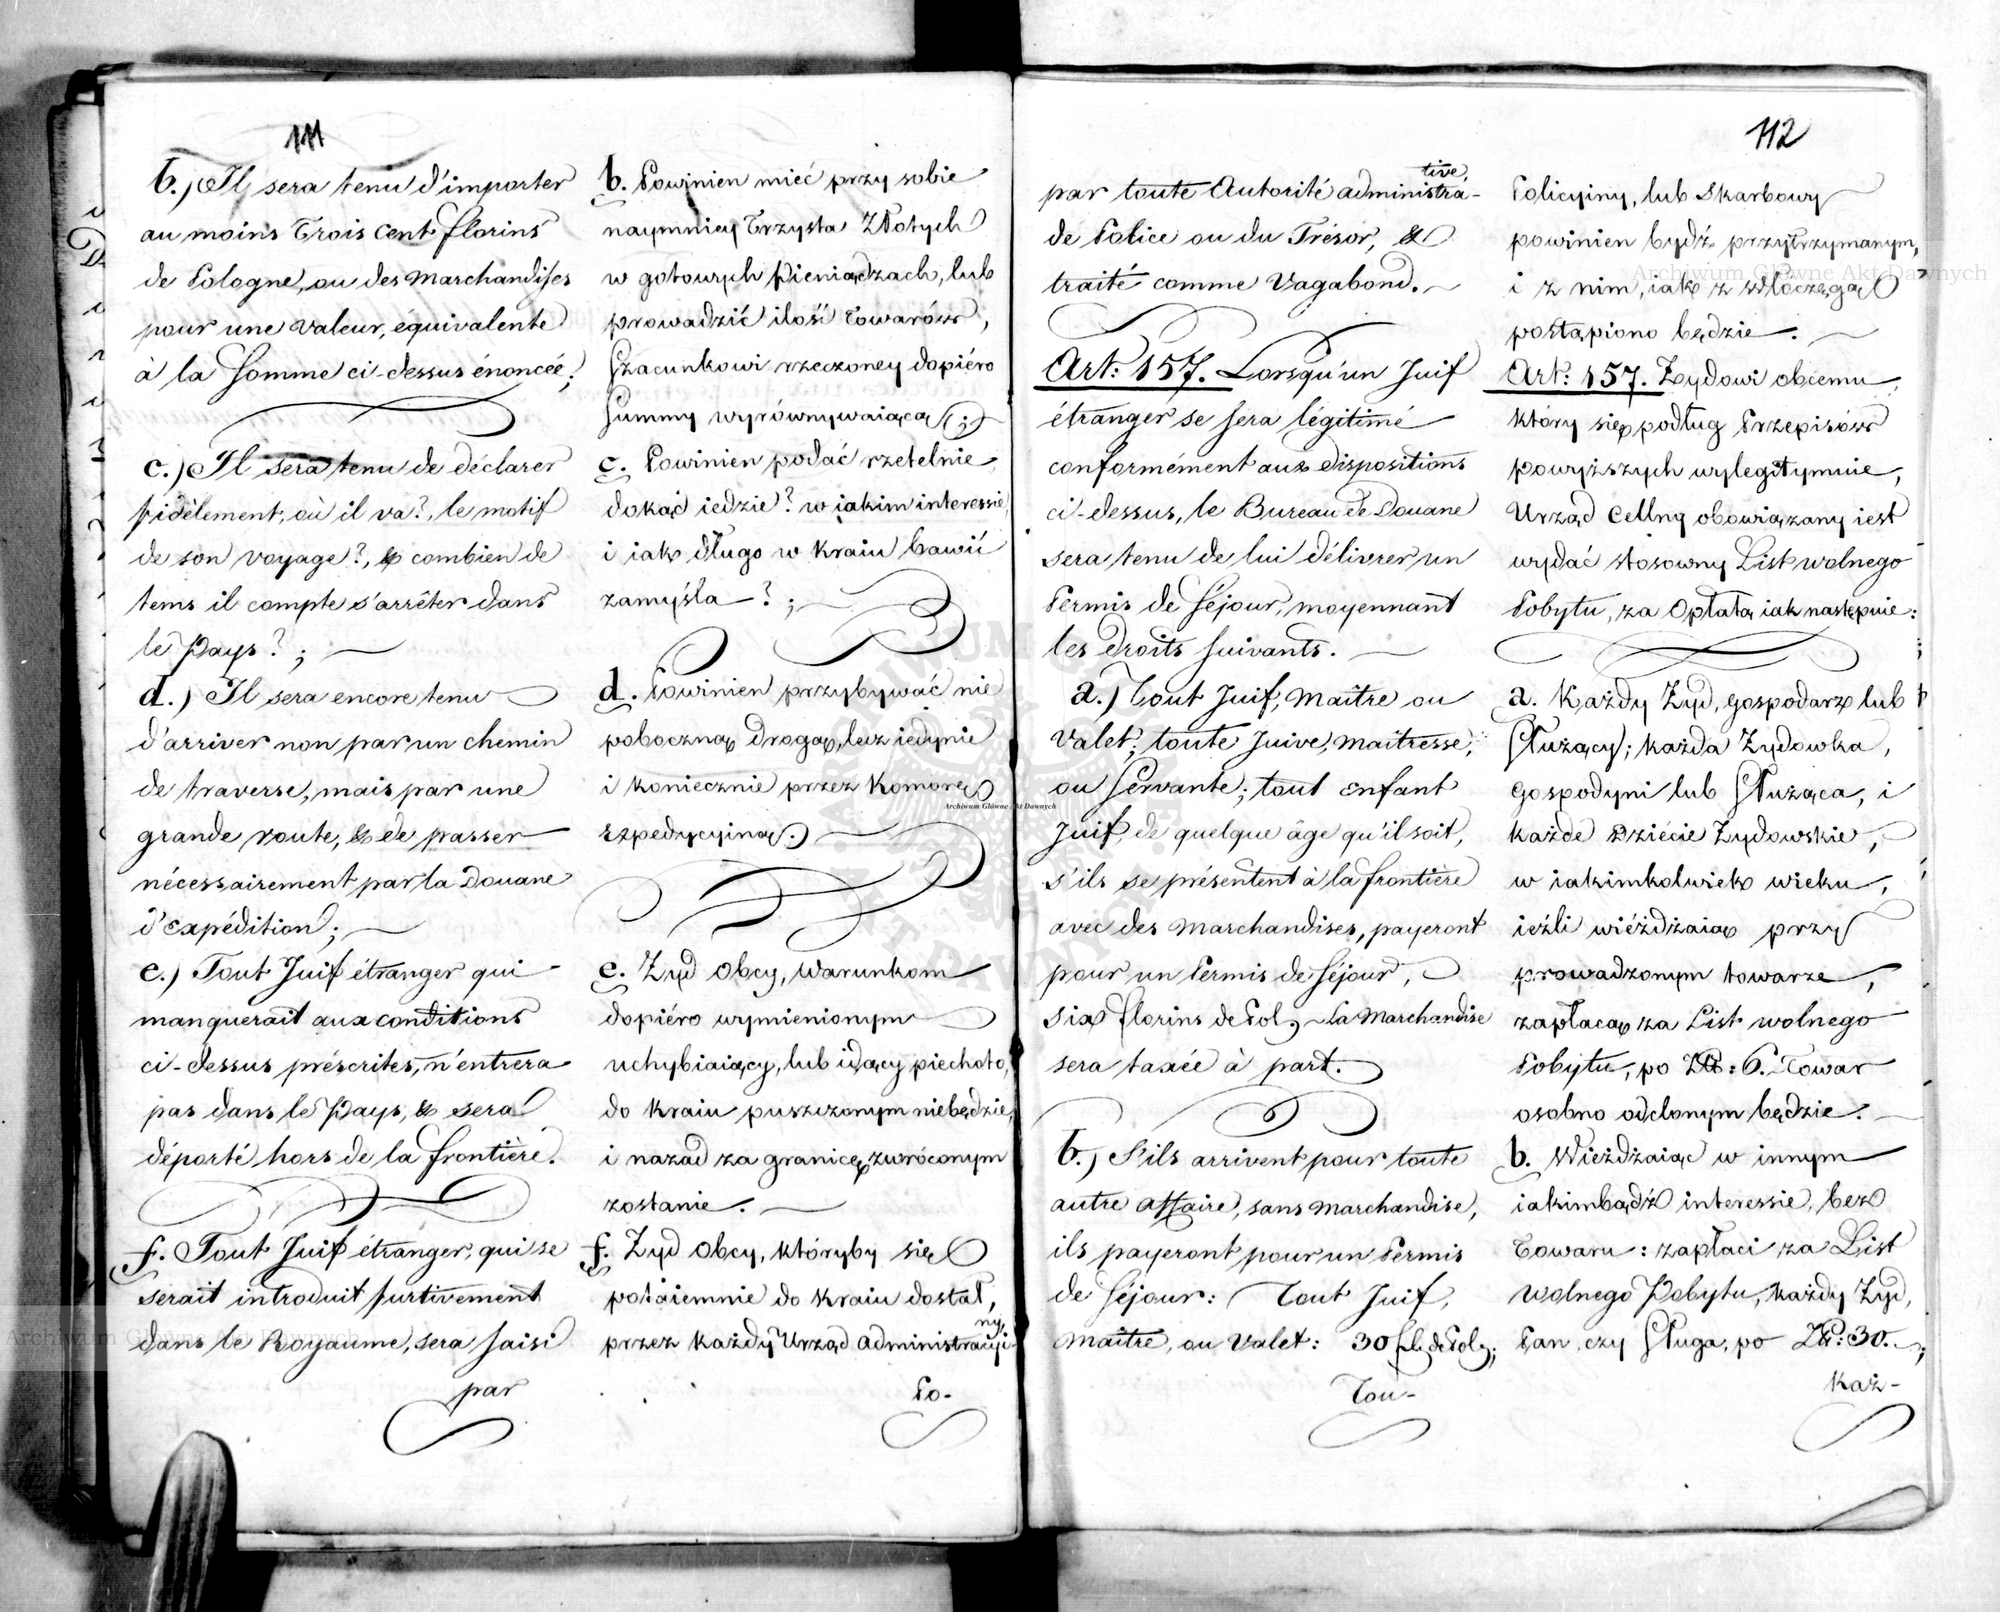 111
b.) Il sera tenu d'importer
au moins Trois cent florins
de Pologne, ou des Marchandises
pour une valeur, équivalente
à la Somme ci-dessus énoncée;
c.) Il sera tenu de déclarer
fidèlement, où il va?, le motif
de son voyage?, & combien de
tems il compte s'arrêter dans
le Pays?;
d.) Il sera encore tenu
d'arriver non par un chemin
de traverse, mais par une
grande route, & de passer
nécessairement par la Douane
d'Expédition;
e.) Tout Juif étranger qui
manquerait aux conditions
ci-dessus préscrites, n'entrera
pas dans le Pays, & sera
déporté hors de la frontière.
f. Tout Juif étranger, qui se
serait introduit furtivement
dans le Royaume, sera saisi
par
b. Powinien mieć przy sobie
naymniey Trzysta Złotych
w gotowych Pieniądzach, lub
prowadzić ilość Towarów,
Szacunkowi rzeczoney dopiéro
Summy wyrównywaiącą;
c. Powinien podać rzetelnie,
dokąd iedzie? w iakim interessie,
i iak długo w kraiu bawić
zamyśla?;
d. Powinien przybywać nie
poboczną drogą, lecz iedynie
i koniecznie przez Komorę
expedycyiną.
e. Żyd obcy, warunkom
dopiéro wymienionym
uchybiaiący, lub idący piechoto,
do kraiu puszczonym niebędzie,
i nazad za granicę zwróconym
zostanie.
f. Żyd obcy, któryby się
potaiemnie do kraiu dostał,
przez każdy Urząd administracyi-
ny,
Po-
112
par toute Autorité administra-
tive,
de Police ou du Trésor, &
traité comme Vagabond.
Art: 157. Lorsqu'un Juif
étranger se sera légitimé
conformément aux dispositions
ci-dessus, le Bureau de Douane
sera tenu de lui délivrer un
Permis de Séjour, moyennant
les Droits suivants.
a.) Tout Juif, Maître ou
Valet; toute Juive, maitresse,
ou Servante; tout enfant
Juif, de quelque âge qu'il soit,
s'ils se présentent à la frontière
avec des Marchandises, payeront
pour un Permis de Séjour,
six florins de Pol; La Marchandise
sera taxée à part.
b.) S'ils arrivent pour toute
autre affaire, sans marchandise,
ils payeront pour un Permis
de Séjour: Tout Juif,
maître, ou Valet: 30 fl. de Pol;
Tou-
Policyiny, lub Skarbowy
powinien bydź przytrzymanym,
i z nim, iak z Włóczęgą
postąpiono będzie.
Art: 157. Żydowi obcemu,
który się podług Przepisów
powyższych wylegitymuie,
Urząd Cellny obowiązany iest
wydać stosowny List wolnego
Pobytu, za Opłatą iak następuie:
a. Każdy Żyd, gospodarz lub
Służący; każda Żydowka,
Gospodyni lub Służąca, i
każde Dziécie Żydowskie,
w iakimkolwiek wieku,
ieźli wiéżdżaią przy
prowadzonym towarze,
zapłacą za List wolnego
Pobytu, po Zł: 6. Towar
osobno odclonym będzie.
b. Wieżdżaiąc w innym
iakimbądź interessie, bez
Towaru: zapłaci za List
wolnego Pobytu, każdy Żyd,
Pan, czy Sługa, po Zł: 30.;
Każ-
Archiwum Główne Akt Dawnych
Archiwum Główne Akt Dawnych
Archiwum Główne Akt Dawnych